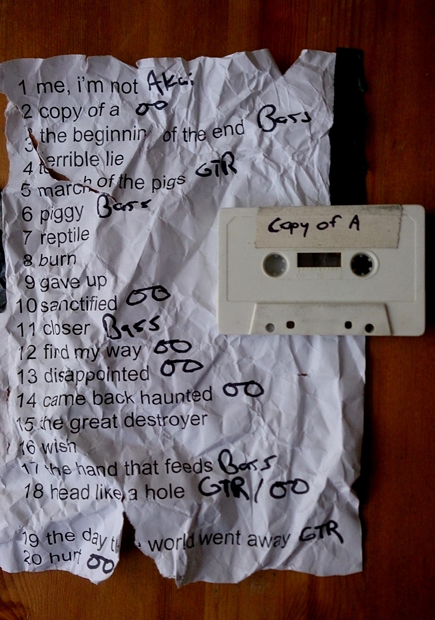 1 me, i'm not Akai
2 copy of a oo
3 the beginnin of the end Bass
4 terrible lie
5 march of the pigs GTR
6 piggy Bass
7 reptile
8 burn
9 gave up
10 sanctified oo
11 closer Bass
12 find my way oo
13 disappointed oo
14 came back haunted oo
15 the great destroyer
16 wish
17 the hand that feeds Bass
18 head like a hole GTR / oo
19 the day t world went away GTR
20 hurt oo
Copy of A